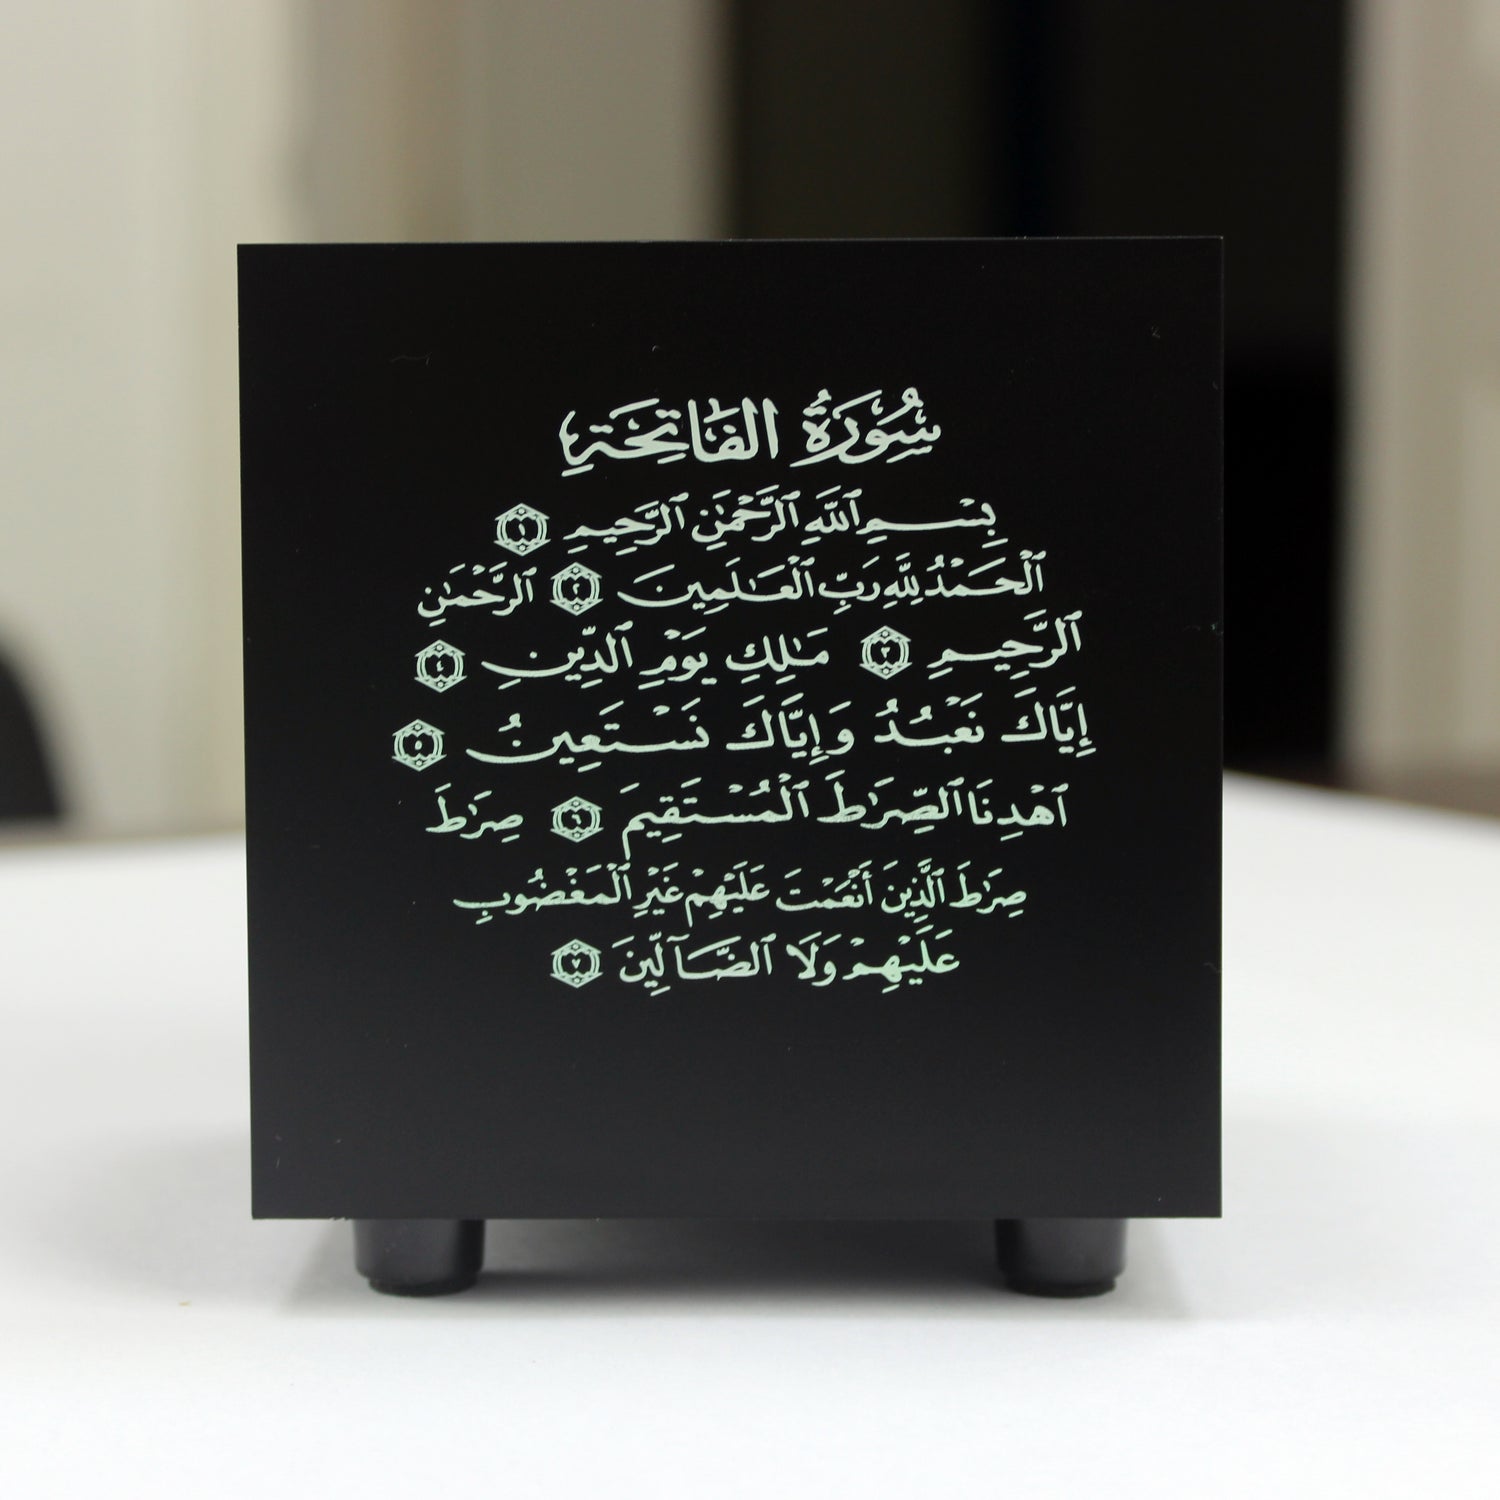 سُورَةُ الفَاتِحَةِ
بِسْمِ ٱللَّهِ ٱلرَّحْمَٰنِ ٱلرَّحِيمِ ١
ٱلْحَمْدُ لِلَّهِ رَبِّ ٱلْعَٰلَمِينَ ٢ ٱلرَّحْمَٰنِ
ٱلرَّحِيمِ ٣ مَٰلِكِ يَوْمِ ٱلدِّينِ ٤
إِيَّاكَ نَعْبُدُ وَإِيَّاكَ نَسْتَعِينُ ٥
ٱهْدِنَا ٱلصِّرَٰطَ ٱلْمُسْتَقِيمَ ٦ صِرَٰطَ
صِرَٰطَ ٱلَّذِينَ أَنْعَمْتَ عَلَيْهِمْ غَيْرِ ٱلْمَغْضُوبِ
عَلَيْهِمْ وَلَا ٱلضَّآلِّينَ ٧